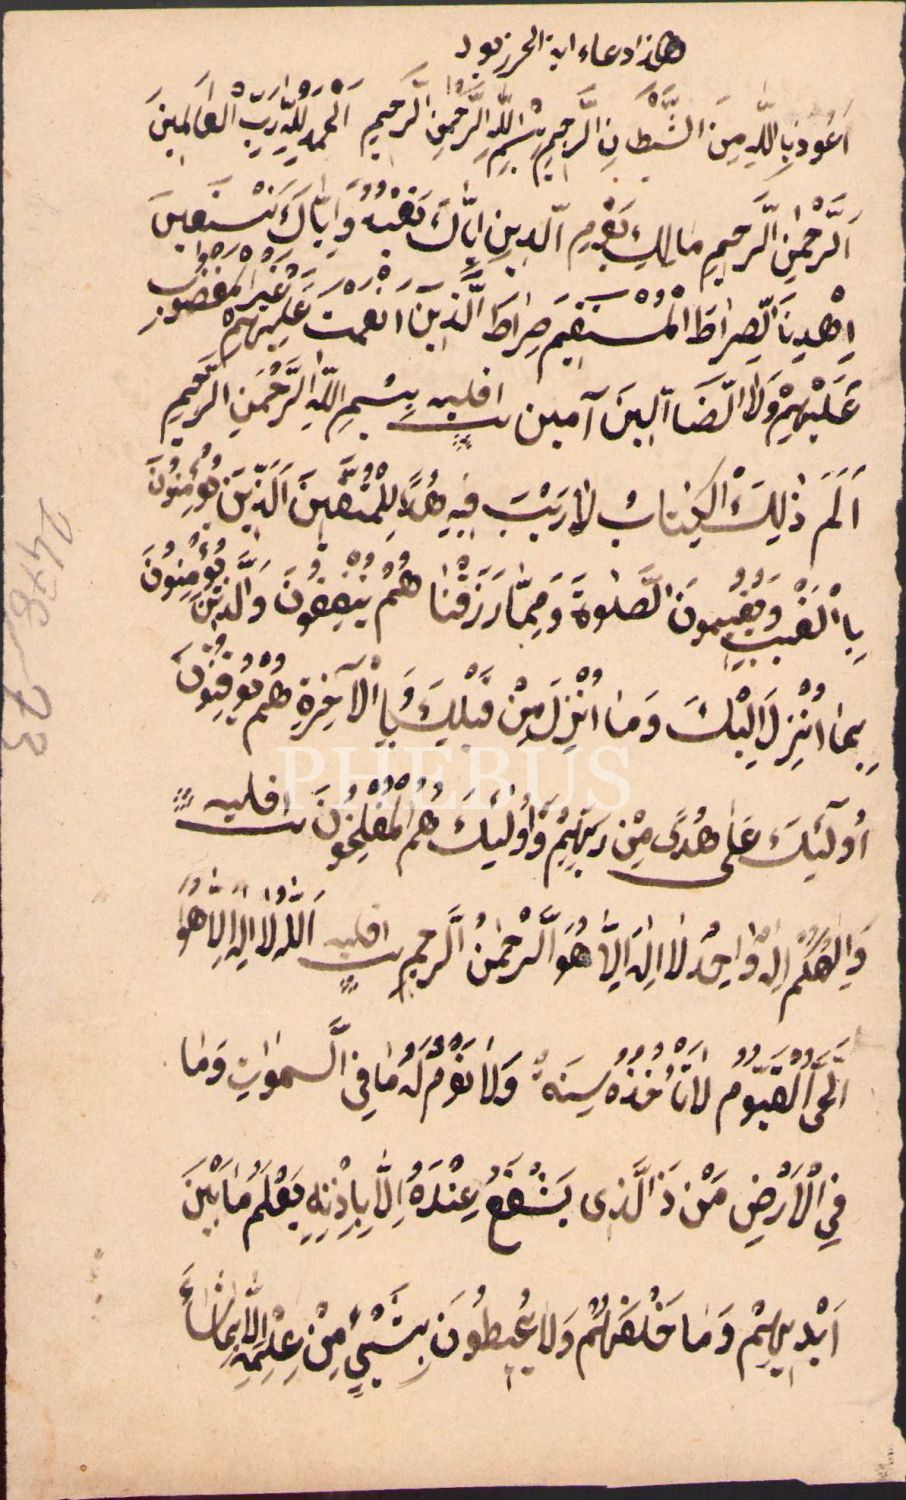 هذا دعاء اية الحرز
اَعُوذُ بِاللّٰهِ مِنَ الشَّيْطَانِ الرَّجِيمِ بِسْمِ اللّٰهِ الرَّحْمٰنِ الرَّحِيمِ اَلْحَمْدُ لِلّٰهِ رَبِّ الْعَالَمِينَ
اَلرَّحْمٰنِ الرَّحِيمِ مَالِكِ يَوْمِ الدِّينِ اِيَّاكَ نَعْبُدُ وَاِيَّاكَ نَسْتَعِينُ
اِهْدِنَا الصِّرَاطَ الْمُسْتَقِيمَ صِرَاطَ الَّذِينَ اَنْعَمْتَ عَلَيْهِمْ غَيْرِ الْمَغْضُوبِ
عَلَيْهِمْ وَلَا الضَّاۤلِّينَ آمين بِسْمِ اللّٰهِ الرَّحْمٰنِ الرَّحِيمِ
اَلَمّ ذٰلِكَ الْكِتَابُ لَا رَيْبَ فِيهِ هُدًى لِلْمُتَّقِينَ اَلَّذِينَ يُؤْمِنُونَ
بِالْغَيْبِ وَيُقِيمُونَ الصَّلٰوةَ وَمِمَّا رَزَقْنَاهُمْ يُنْفِقُونَ وَالَّذِينَ يُؤْمِنُونَ
بِمَا اُنْزِلَ اِلَيْكَ وَمَا اُنْزِلَ مِنْ قَبْلِكَ وَبِالْآخِرَةِ هُمْ يُوقِنُونَ
اُولٰئِكَ عَلٰى هُدًى مِنْ رَبِّهِمْ وَاُولٰئِكَ هُمُ الْمُفْلِحُونَ
وَاِلٰهُكُمْ اِلٰهٌ وَاحِدٌ لَا اِلٰهَ اِلَّا هُوَ الرَّحْمٰنُ الرَّحِيمُ اَللّٰهُ لَا اِلٰهَ اِلَّا هُوَ
الْحَىُّ الْقَيُّومُ لَا تَأْخُذُهُ سِنَةٌ وَلَا نَوْمٌ لَهُ مَا فِى السَّمٰوَاتِ وَمَا
فِى الْاَرْضِ مَنْ ذَا الَّذِى يَشْفَعُ عِنْدَهُ اِلَّا بِاِذْنِهِ يَعْلَمُ مَا بَيْنَ
اَيْدِيهِمْ وَمَا خَلْفَهُمْ وَلَا يُحِيطُونَ بِشَيْءٍ مِنْ عِلْمِهِ اِلَّا بِمَا شَاءَ
PHEBUS